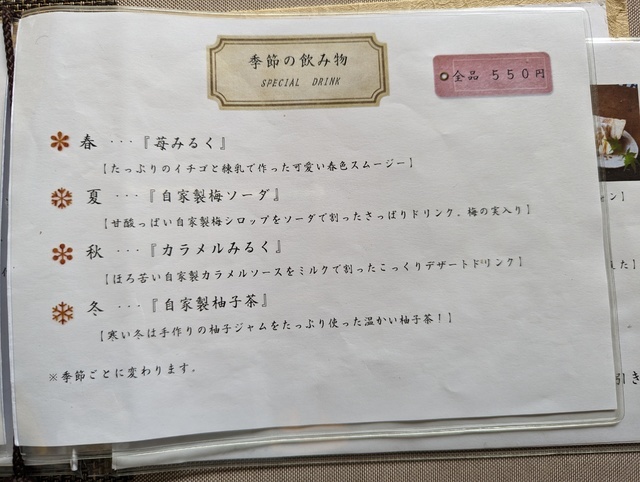 季節の飲み物
SPECIAL DRINK
全品 550円
春 ･･･『苺みるく』
【たっぷりのイチゴと練乳で作った可愛い春色スムージー】
夏 ･･･『自家製梅ソーダ』
【甘酸っぱい自家製梅シロップをソーダで割ったさっぱりドリンク。梅の実入り】
秋 ･･･『カラメルみるく』
【ほろ苦い自家製カラメルソースをミルクで割ったこっくりデザートドリンク】
冬 ･･･『自家製柚子茶』
【寒い冬は手作りの柚子ジャムをたっぷり使った温かい柚子茶！】
※季節ごとに変わります。
ン】
えた】
引き